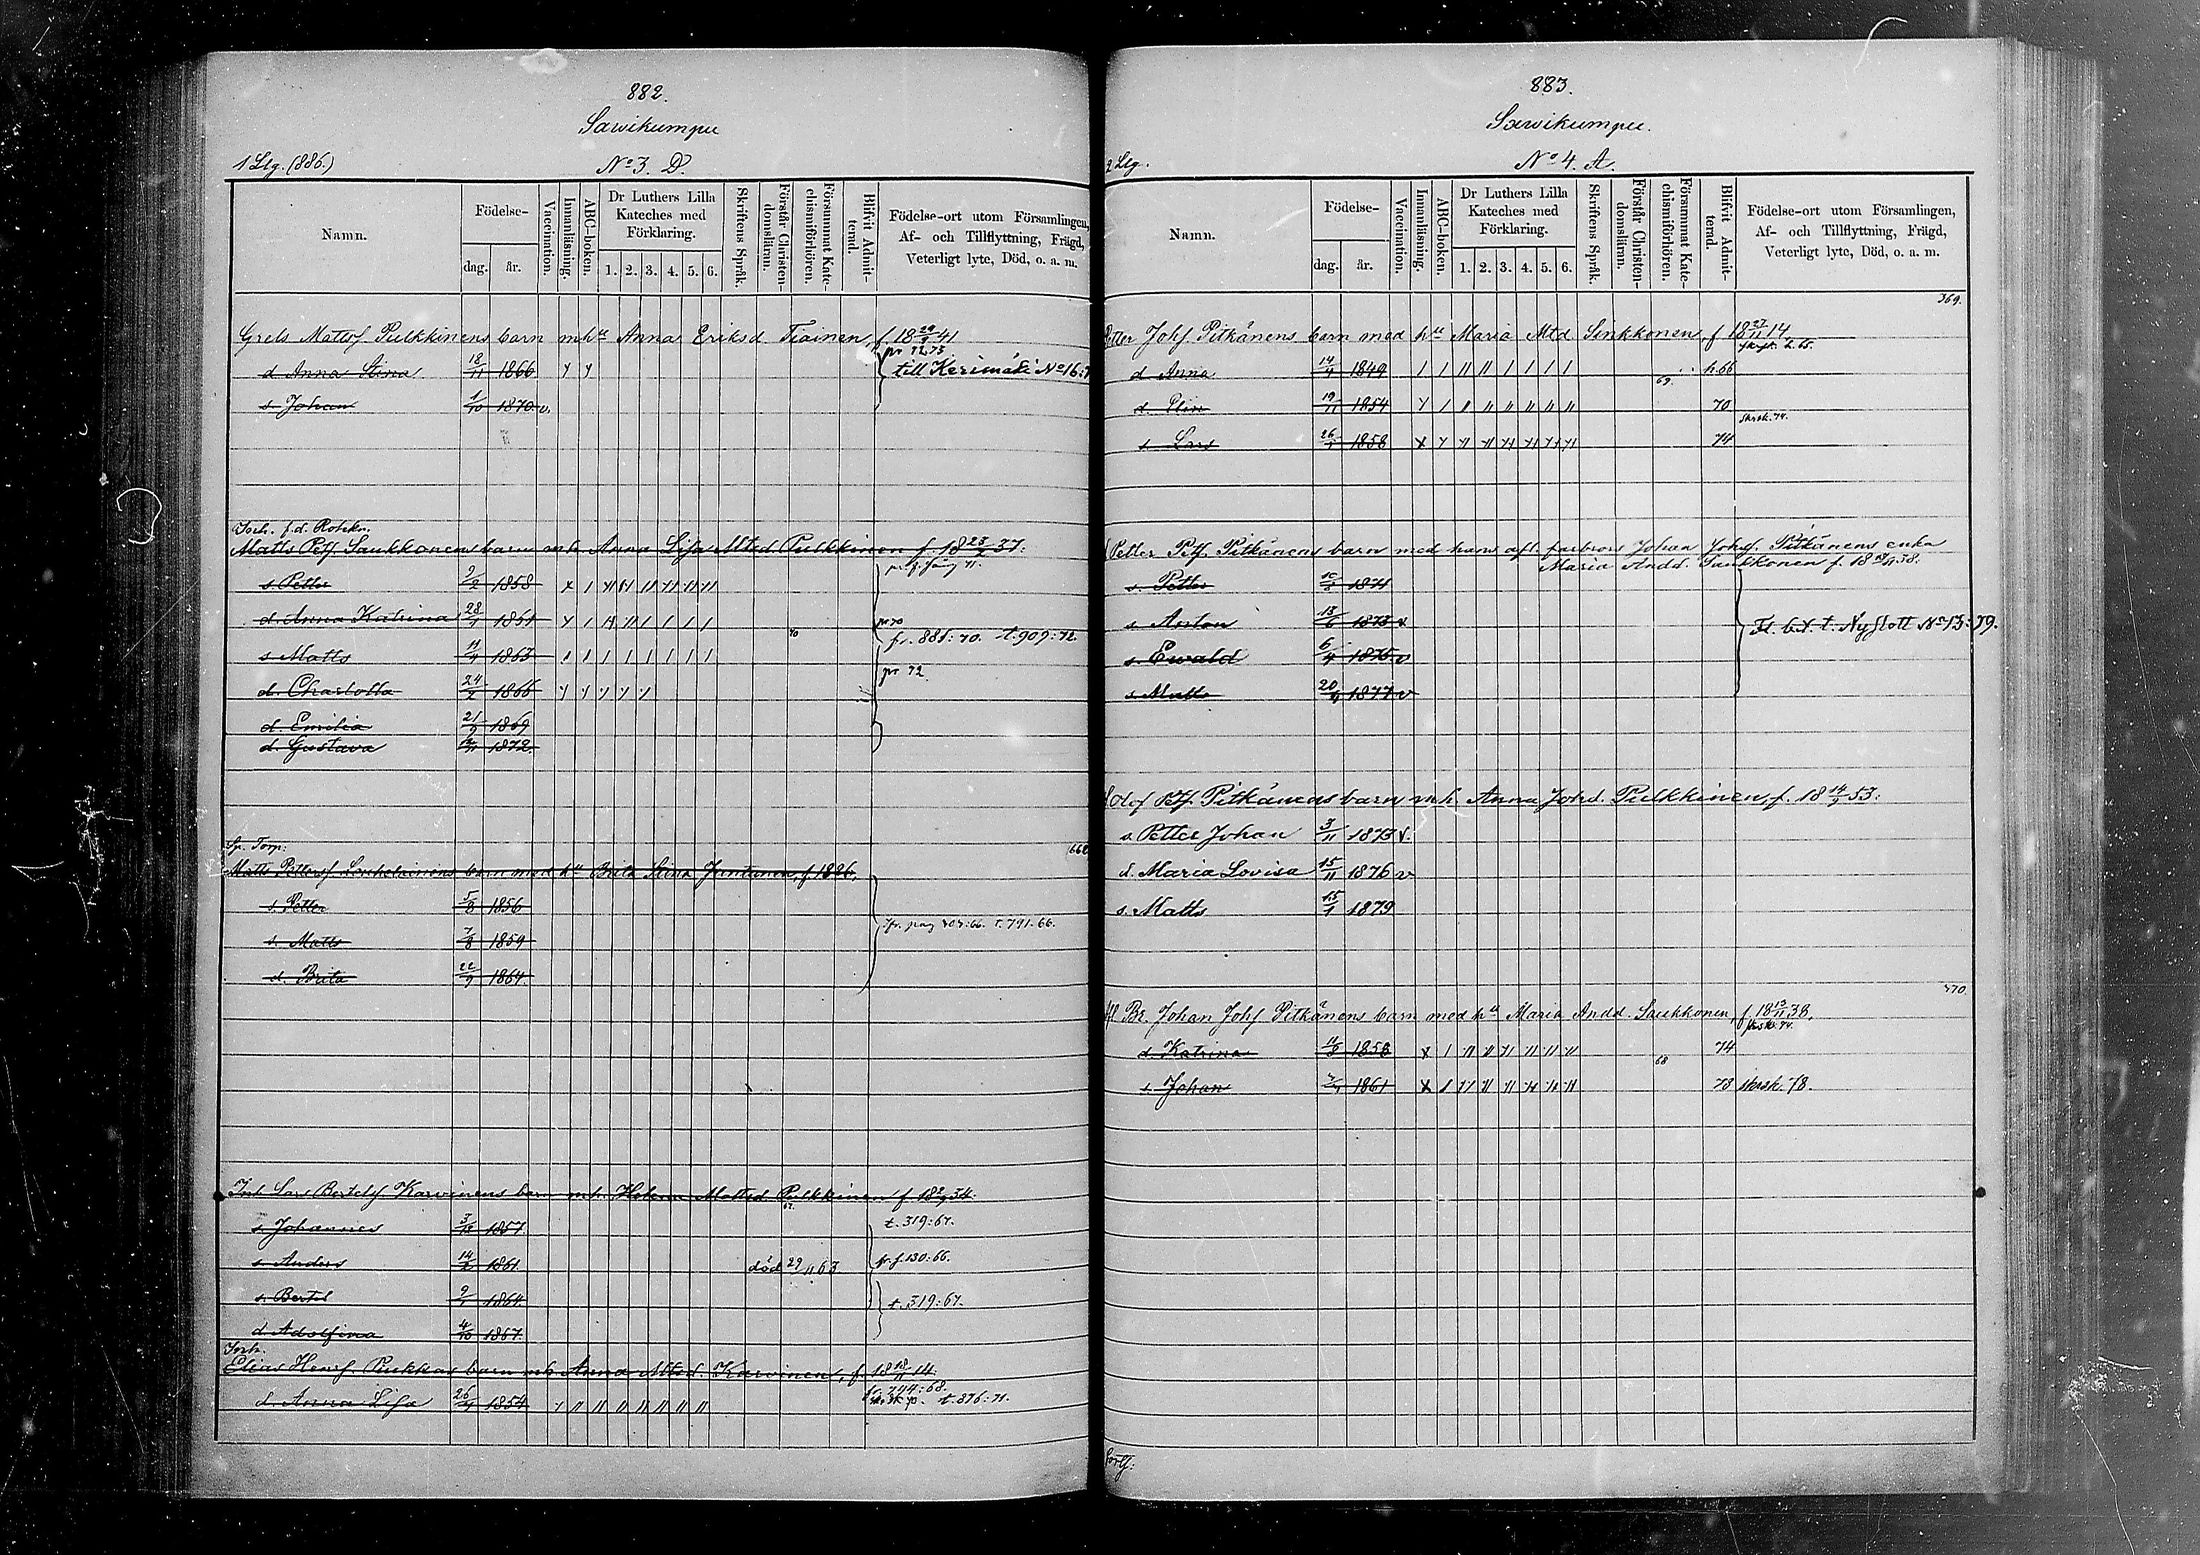 882.
Sawikumpu
1 Llg. (886.)
No 3. D.
Namn.
Födelse-
dag.
år.
Vaccination.
Innanläsning.
ABC-boken.
Dr Luthers Lilla
Kateches med
Förklaring.
1. 2. 3. 4. 5. 6.
Skriftens Språk.
Förstår Christen-
domslämn.
Försummat Kate-
chismiförhören.
Blifvit Admit-
terad.
Födelse-ort utom Församlingen,
Af- och Tillflyttning, Frägd,
Veterligt lyte, Död, o. a. m.
Grels Mattsf Pulkkinens barn m hu Anna Eriksd. Tiainen, f. 18 29/9 41
d Anna Stina 18/11 1866 till Kerimäki No 16:
s. Johan 1/10 1870 v.
Torh. f.d. Rotekn.
Matts Petf. Saukkonens barn mh Anna Lisa Mtsd Pulkkinen f. 18 37.
s Petter 9/2 1858
d. Anna Katrina 1861 pr 70
fr. 881:70. t. 909:72
s Matts 11/4 1863
pr 72
d. Charlotta 1866
d. Emilia 21/9 1869
d. Gustava 1872.
Sp. Torp:
Matts Pettersf barn med hu Brita Stina Juntunen, f 1826,
s. Petter 5/8 1856
s. Matts 7/8 1859 t. 791. 66.
d. Brita 22/9 1864.
Inh Lars Bertelsf. Karvinens barn mh. Helena Mattsd Pulkkinen f 18 34.
s. Johannes 3/12 1857. t. 319:67.
s Anders 14/2 1861 död 29/11 63 f. 130:66.
s. Bertel 1864. t. 319:67.
d Adolfina 4/10 1867.
Torh.
Elias Henrf. Pulkkas barn mh Anna Mtsd. Karvinen, f. 18 18/11 14.
d. Anna Lisa 26/4 1854 t. 876:71.
883.
Sawikumpu.
2 Llg.
No 4. A.
Namn.
Födelse-
dag.
år.
Vaccination.
Innanläsning.
ABC-boken.
Dr Luthers Lilla
Kateches med
Förklaring.
1. 2. 3. 4. 5. 6.
Skriftens Språk.
Förstår Christen-
domslämn.
Försummat Kate-
chismiförhören.
Blifvit Admit-
terad.
Födelse-ort utom Församlingen,
Af- och Tillflyttning, Frägd,
Veterligt lyte, Död, o. a. m.
369.
Petter Johf Pitkänens barn med hu Maria Mtd. Sinkkonen, f 18 27/11 14
d Anna 14/4 1849 h. 66
69.
d. Elin 19/11 1854 70
skrsk. 74.
s Lars 1858 74
Petter Petf. Pitkänens barn med hans afl. farbrors Johan Johsf. Pitkänens enka
Maria Andd. Saukkonen f. 18 38.
s. Petter 1871
s. Anton 13/6 1873 v
s. Ewald 6/4 1875 v
s. Matts 20/9 1877 v
t. Nyslott No 13:79.
Olof Petf. Pitkänens barn mh. Anna Johsd. Pulkkinen, f. 18 14/9 53.
s. Petter Johan 3/11 1873 v.
d. Maria Lovisa 15/11 1876 v
s. Matts 15/1 1879
370.
Afl Br. Johan Johf Pitkänens barn med hu Maria Andd. Saukkonen, f 18 13/11 38.
d. Katrina 11/8 1858 74
68
s Johan 1861 78 skrsk. 78.
Fortf: